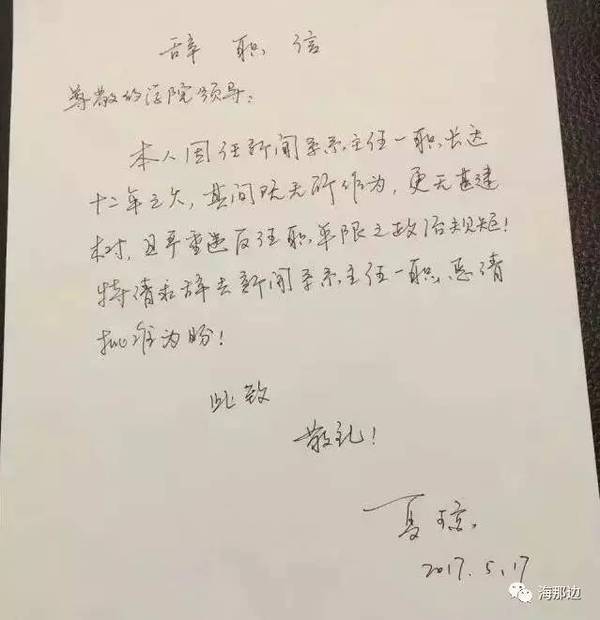 辞职信
尊敬的学院领导：
本人因任新闻系系主任一职长达
十二年之久，其间既无所作为，更无甚建
树，且严重违反任职年限之政治规矩！
特请求辞去新闻系系主任一职，恳请
批准为盼！
此致
敬礼！
夏琼
2017.5.17
海那边